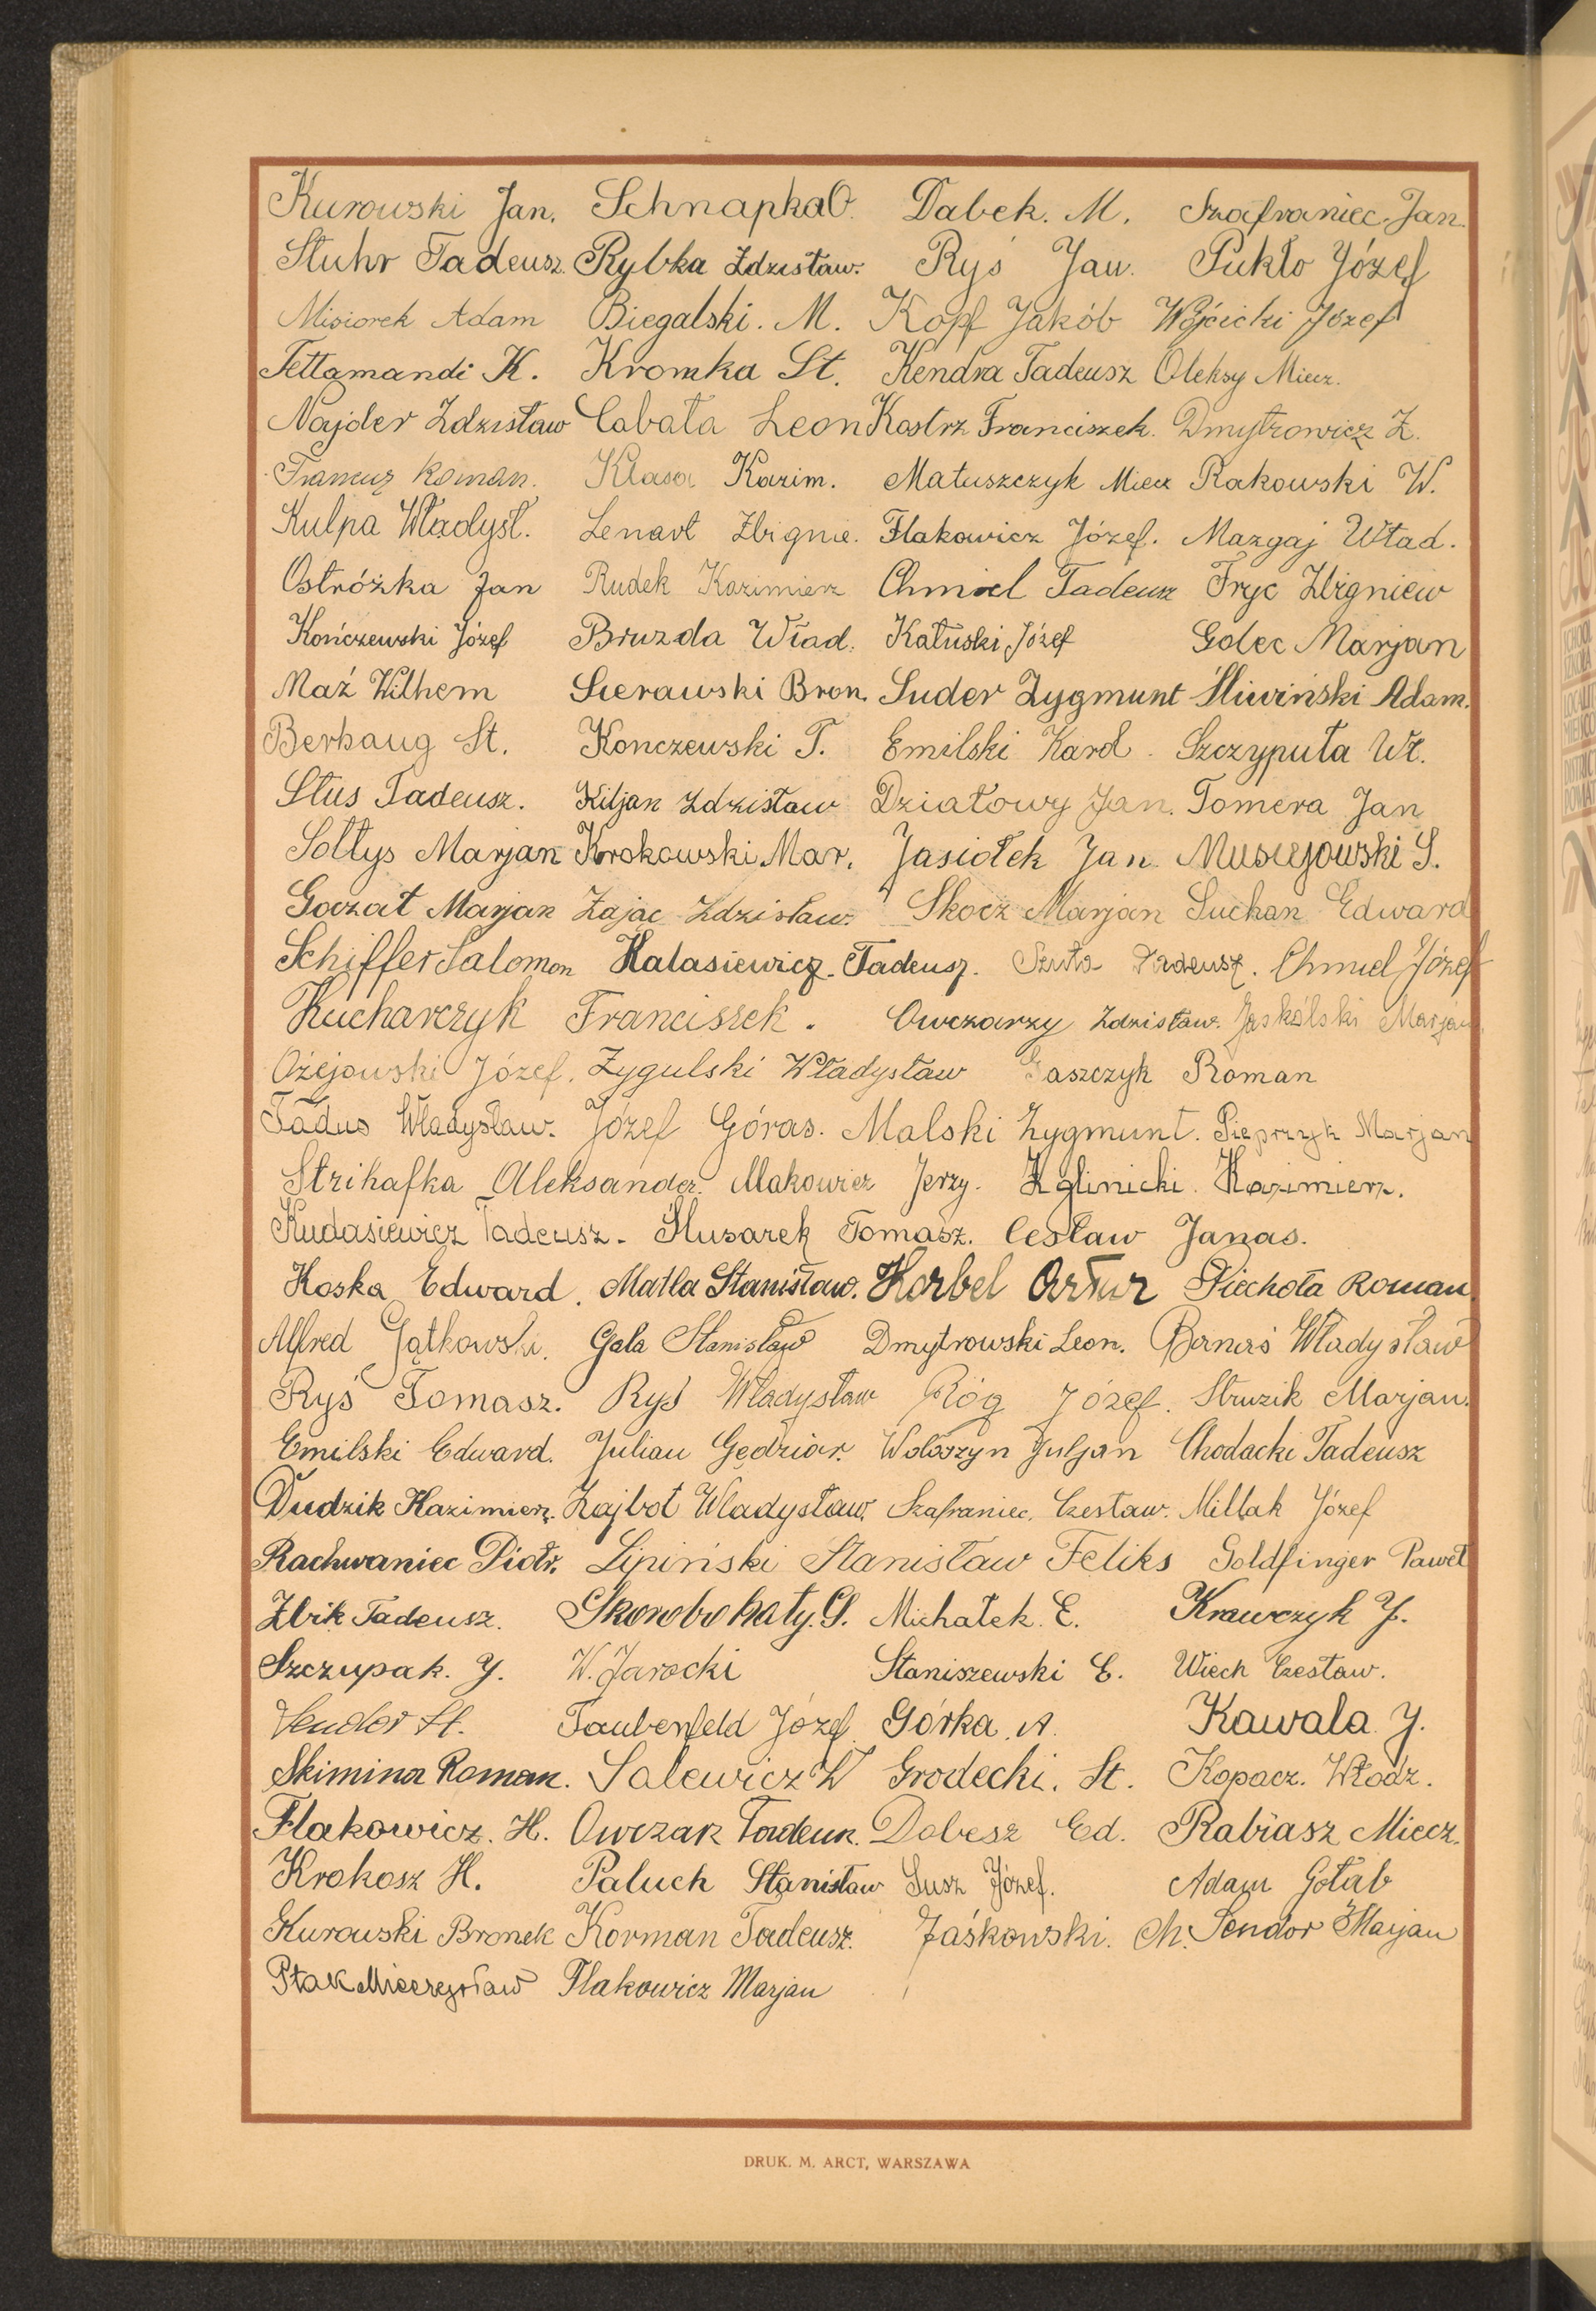 Kurowski Jan. Schnapka O. Dabek. M. Szafraniec Jan.
Stuhr Tadeusz. Rybka Zdzisław. Ryś Jan. Pukło Józef
Misiorek Adam Biegalski. M. Kopf Jakób Wójcicki Józef
Tettamandi K. Kromka St. Kendra Tadeusz Oleksy Miecz.
Najder Zdzisław Cabała Leon Kostrz Franciszek. Dmytrowicz Z.
Francuz Roman. Klasa Kazim. Matuszczyk Miecz Rakowski W.
Kulpa Władysł. Lenart Zbignie. Flakowicz Józef. Mazgaj Wład.
Ostróżka Jan Rudek Kazimierz Chmiel Tadeusz Fryc Zbigniew
Kończewski Józef Bruzda Wład. Kałuski Józef Golec Marjan
Maź Wilhem Sierawski Bron. Suder Zygmunt Śliwiński Adam.
Berhaug St. Konczewski T. Emilski Karol. Szczypuła Wł.
Stus Tadeusz. Kiljan Zdzisław Działowy Jan. Tomera Jan
Sołtys Marjan Krokowski Mar. Jasiołek Jan Musiejowski S.
Goczał Marjan Zając Zdzisław. Skocz Marjan Suchan Edward
Schiffer Salomon Halasiewicz Tadeusz. Szuła Tadeusz. Chmiel Józef
Kucharczyk Franciszek. Owczarzy Zdzisław. Jaskólski Marjan
Ożejowski Józef. Zygulski Władysław Gaszczyk Roman
Tadus Władysław. Józef Góras. Malski Zygmunt. Pieprzyk Marjan
Strihafka Aleksander. Makowicz Jerzy. Zglinicki. Kazimierz.
Kudasiewicz Tadeusz. Ślusarek Tomasz. Cesław Janas.
Koska Edward. Matla Stanisław. Korbel Artur Piechota Roman.
Alfred Gałkowski. Gala Stanisław Dmytrowski Leon. Banaś Władysław
Ryś Tomasz. Ryś Władysław Róg Józef. Struzik Marjan.
Emilski Edward. Julian Gędziar. Wołoszyn Juljan Chodacki Tadeusz
Dudzik Kazimierz. Zajbot Władysław. Szafraniec. Czesław. Millak Józef
Rachwaniec Piotr. Lipiński Stanisław Feliks Goldfinger Paweł
Zbik Tadeusz. Skorobohaty. G. Michałek. E. Krawczyk J.
Szczupak. J. W. Jarocki Staniszewski E. Wiech Czesław.
Sendor St. Taubenfeld Józef Górka. A. Kawala J.
Skimina Roman. Salewicz W Grodecki. St. Kopacz. Włodz.
Flakowicz. H. Owczak Tadeusz. Dobesz Ed. Rabiasz Miecz.
Krokosz H. Paluch Stanisław Susz Józef. Adam Gołąb
Kurowski Bronek Korman Tadeusz. Jaśkowski. Ch. Sendor Marjan
Ptak Mieczysław Flakowicz Marjan
DRUK. M. ARCT, WARSZAWA